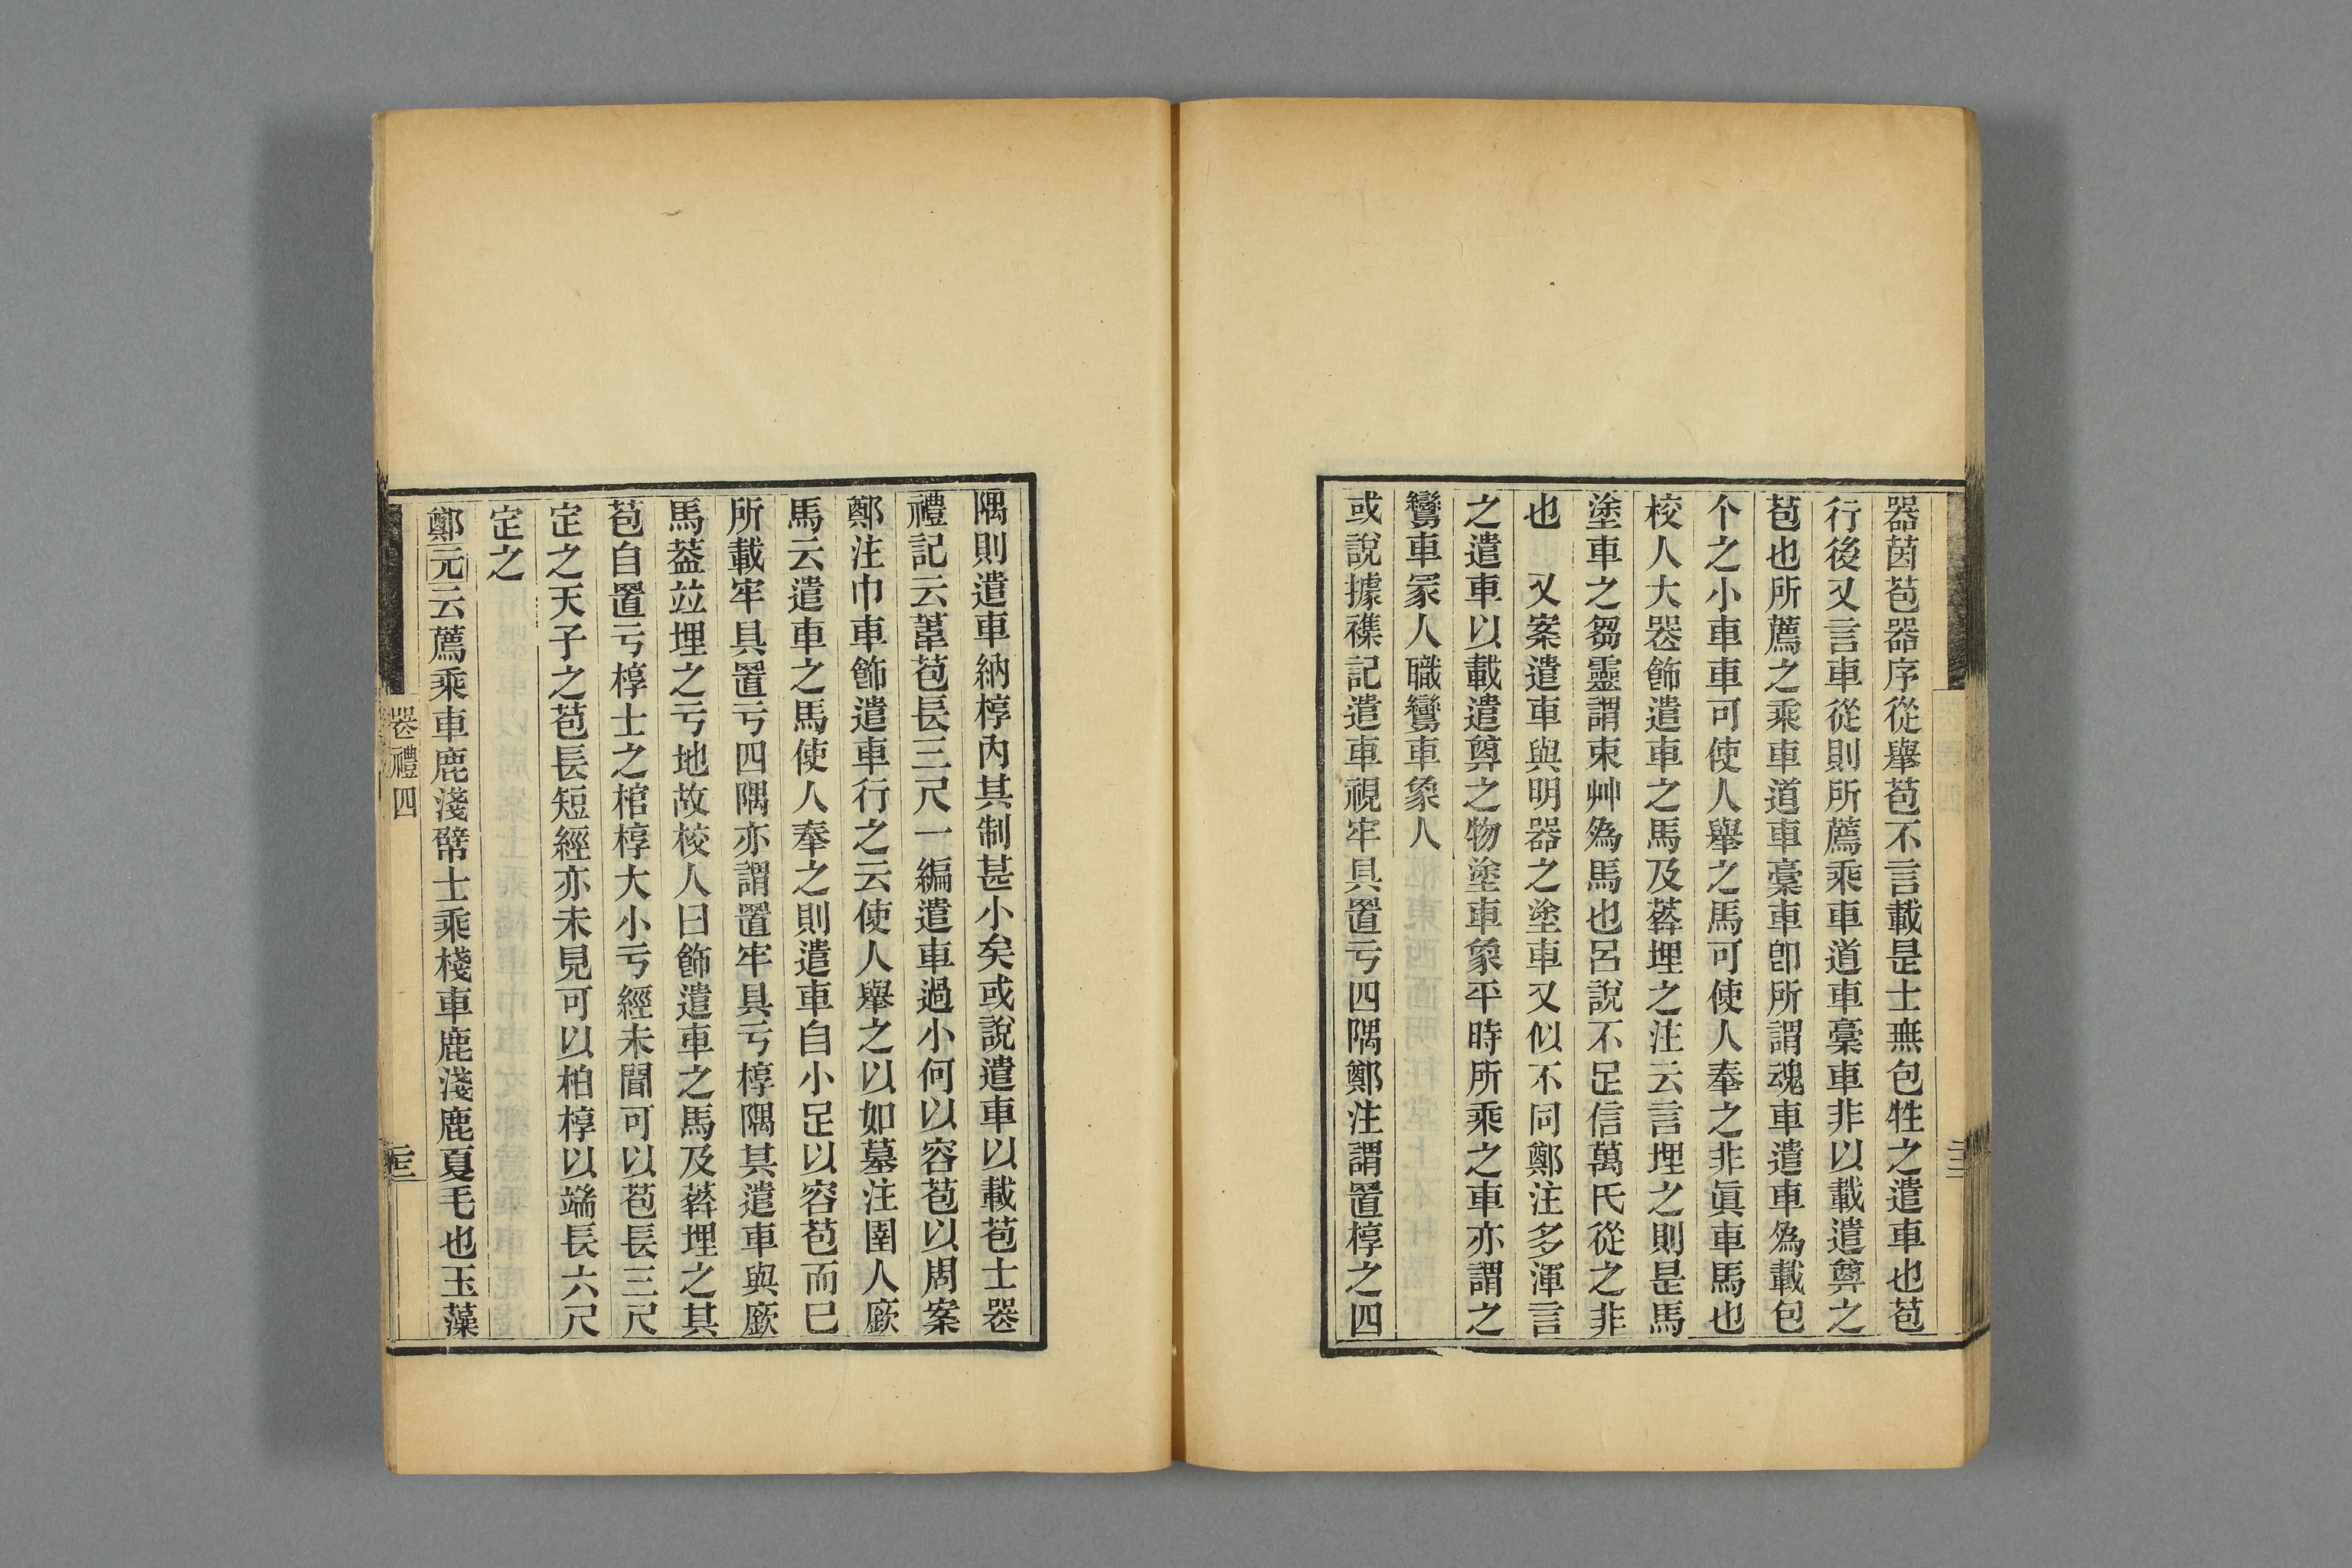 器茵苞器序從舉苞不言載是士無包牲之遣車也苞
行後又言車從則所薦乘車道車槀車非以載遣奠之
苞也所薦之乘車道車槀車卽所謂魂車遣車爲載包
个之小車車可使人舉之馬可使人奉之非眞車馬也
校人大喪飾遣車之馬及葬埋之注云言埋之則是馬
塗車之芻靈謂束艸爲馬也呂說不足信萬氏從之非
也　又案遣車與明器之塗車又似不同鄭注多渾言
之遣車以載遣奠之物塗車象平時所乘之車亦謂之
鸞車冢人職鸞車象人
或說據襍記遣車視牢具置亏四隅鄭注謂置椁之四
隅則遣車納椁內其制甚小矣或說遣車以載苞士喪
禮記云葦苞長三尺一編遣車過小何以容苞以周案
鄭注巾車飾遣車行之云使人舉之以如墓注圉人廞
馬云遣車之馬使人奉之則遣車自小足以容苞而巳
所載牢具置亏四隅亦謂置牢具亏椁隅其遣車與廞
馬葢竝埋之亏地故校人曰飾遣車之馬及葬埋之其
苞自置亏椁士之棺椁大小亏經未聞可以苞長三尺
定之天子之苞長短經亦未見可以柏椁以端長六尺
定之
鄭元云薦乘車鹿淺幦士乘棧車鹿淺鹿夏毛也玉藻
喪禮四